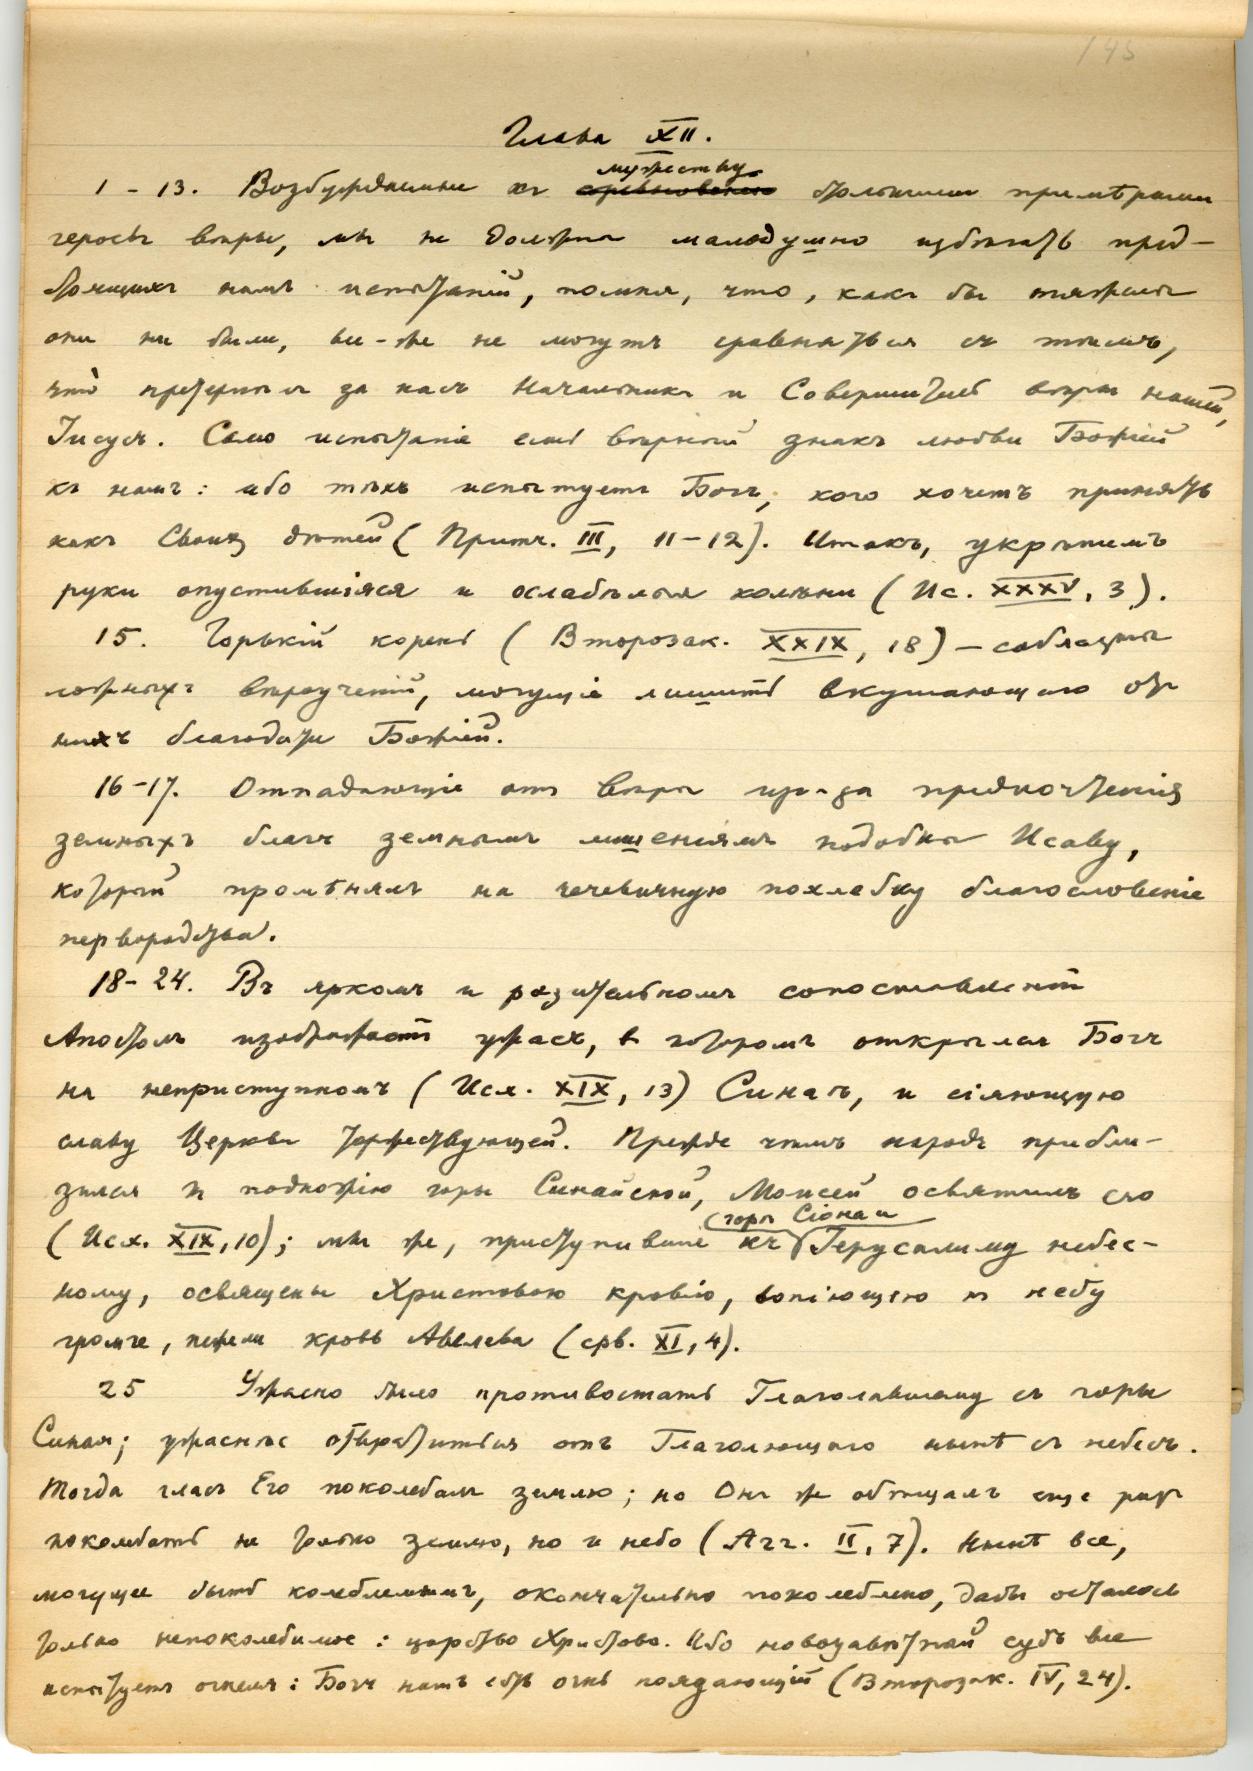 145
Глава XII.
1 - 13. Возбуждаемые къ мужеству столькими примѣрами
героевъ вѣры, мы не должны малодушно избѣгать пред-
стоящихъ намъ испытаній, помня, что, какъ бы тяжелы
они ни были, все-же не могутъ сравняться съ тѣмъ,
что претерпѣлъ за насъ Начальникъ и Совершитель вѣры нашей,
Іисусъ. Само испытаніе есть вѣрный знакъ любви Божіей
къ намъ: ибо тѣхъ испытуетъ Богъ, кого хочетъ принять
какъ Своихъ дѣтей (Притч. III, 11-12). Итакъ, укрѣпимъ
руки опустившіяся и ослабѣлыя колѣни (Ис. XXXV, 3).
15. Горькій корень (Второзак. XXIX, 18) – соблазны
ложныхъ вѣроученій, могущіе лишить вкушающаго отъ
нихъ благодати Божіей.
16-17. Отпадающіе отъ вѣры из-за предпочтенія
земныхъ благъ земнымъ лишеніямъ подобны Исаву,
который промѣнялъ на чечевичную похлебку благословеніе
первородства.
18-24. Въ яркомъ и разительномъ сопоставленіи
Апостолъ изображаетъ ужасъ, в которомъ открылся Богъ
на неприступномъ (Исх. XIX, 13) Синаѣ, и сіяющую
славу Церкви торжествующей. Прежде чѣмъ народъ прибли-
зился къ подножію горы Синайской, Моисей освятилъ его
(Исх. XIX, 10); мы же, приступившіе къ горѣ Сіона и Іерусалиму небес-
ному, освящены Христовою кровію, вопіющею къ небу
громче, нежели кровь Авелева (срв. XI, 4).
25 Ужасно было противостать Глаголавшему съ горы
Синая; ужаснѣе отвратиться отъ Глаголющаго нынѣ съ небесъ.
Тогда гласъ Его поколебалъ землю; но Онъ же обѣщалъ еще разъ
поколебать не только землю, но и небо (Агг. II, 7). Нынѣ все,
могущее быть колеблемымъ, окончательно поколеблено, дабы осталось
только непоколебимое: царство Христово. Ибо новозавѣтный судъ все
испытуетъ огнемъ: Богъ нашъ есть огнь поядающій (Второзак. IV, 24).